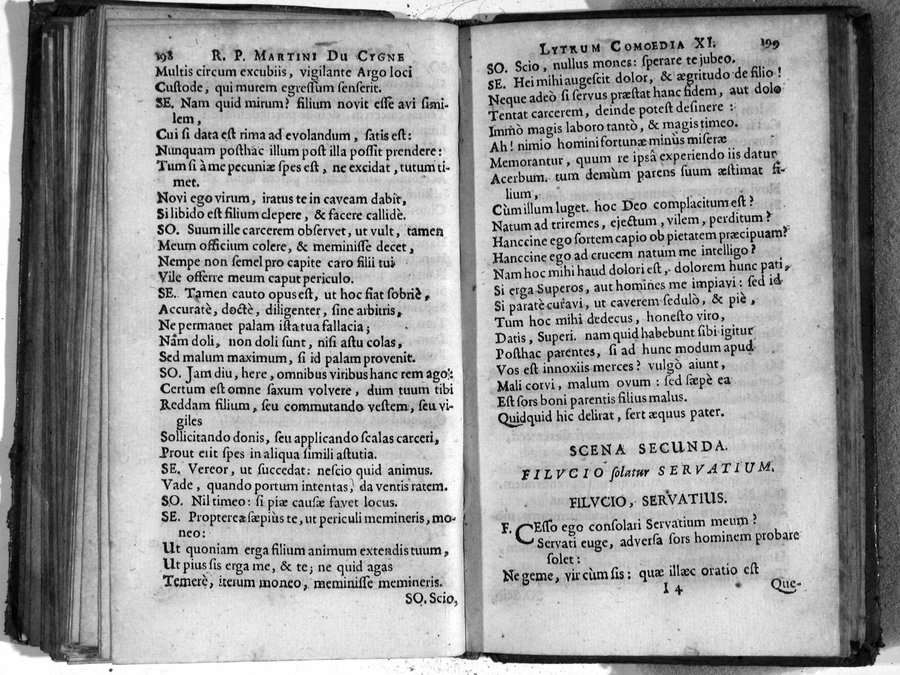 198 R. P. MARTINI DU CYGNE
Multis circum excubiis, vigilante Argo loci
Custode, qui murem egressum senserit.
SE. Nam quid mirum? filium novit esse avi simi-
lem,
Cui si data est rima ad evolandum, satis est:
Nunquam posthac illum post illa possit prendere:
Tum si à me pecuniæ spes est, ne excidat, tutum ti-
met.
Novi ego virum, iratus te in caveam dabit,
Si libido est filium clepere, & facere callidè.
SO. Suum ille carcerem observet, ut vult, tamen
Meum officium colere, & meminisse decet,
Nempe non semel pro capite caro filii tui
Vile offerre meum caput periculo.
SE. Tamen cauto opus est, ut hoc fiat sobriè,
Accuratè, doctè, diligenter, sine arbitris,
Ne permanet palam ista tua fallacia;
Nam doli, non doli sunt, nisi astu colas,
Sed malum maximum, si id palam provenit.
SO. Jam diu, here, omnibus viribus hanc rem ago:
Certum est omne saxum volvere, dum tuum tibi
Reddam filium, seu commutando vestem, seu vi-
giles
Sollicitando donis, seu applicando scalas carceri,
Prout erit spes in aliqua simili astutia.
SE. Vereor, ut succedat: nescio quid animus.
Vade, quando portum intentas, da ventis ratem.
SO. Nil timeo: si piæ causæ favet locus.
SE. Propterea sæpiùs te, ut periculi memineris, mo-
neo:
Ut quoniam erga filium animum extendis tuum,
Ut pius sis erga me, & te; ne quid agas
Temerè, iterum moneo, meminisse memineris.
SO. Scio,
LYTRUM COMOEDIA XI. 199
SO. Scio, nullus mones: sperare te jubeo.
SE. Hei mihi augescit dolor, & ægritudo de filio!
Neque adeò si servus præstat hanc fidem, aut dolo
Tentat carcerem, deinde potest desinere:
Immò magis laboro tantò, & magis timeo.
Ah! nimio homini fortunæ minùs miseræ
Memorantur, quum re ipsâ experiendo iis datur
Acerbum. tum demùm parens suum æstimat fi-
lium,
Cùm illum luget. hoc Deo complacitum est?
Natum ad triremes, ejectum, vilem, perditum?
Hanccine ego sortem capio ob pietatem præcipuam?
Hanccine ego ad crucem natum me intelligo?
Nam hoc mihi haud dolori est, dolorem hunc pati,
Si erga Superos, aut homines me impiavi: sed id
Si paratè curavi, ut caverem sedulò, & piè,
Tum hoc mihi dedecus, honesto viro,
Datis, Superi. nam quid habebunt sibi igitur
Posthac parentes, si ad hunc modum apud
Vos est innoxiis merces? vulgò aiunt,
Mali corvi, malum ovum: sed sæpè ea
Est sors boni parentis filius malus.
Quidquid hic delirat, fert æquus pater.
SCENA SECUNDA.
FILVCIO solatur SERVATIUM.
FILVCIO, SERVATIUS.
F. CEsso ego consolari Servatium meum?
Servati euge, adversa sors hominem probare
solet:
Ne geme, vir cùm sis: quæ illæc oratio est
I 4 Que-